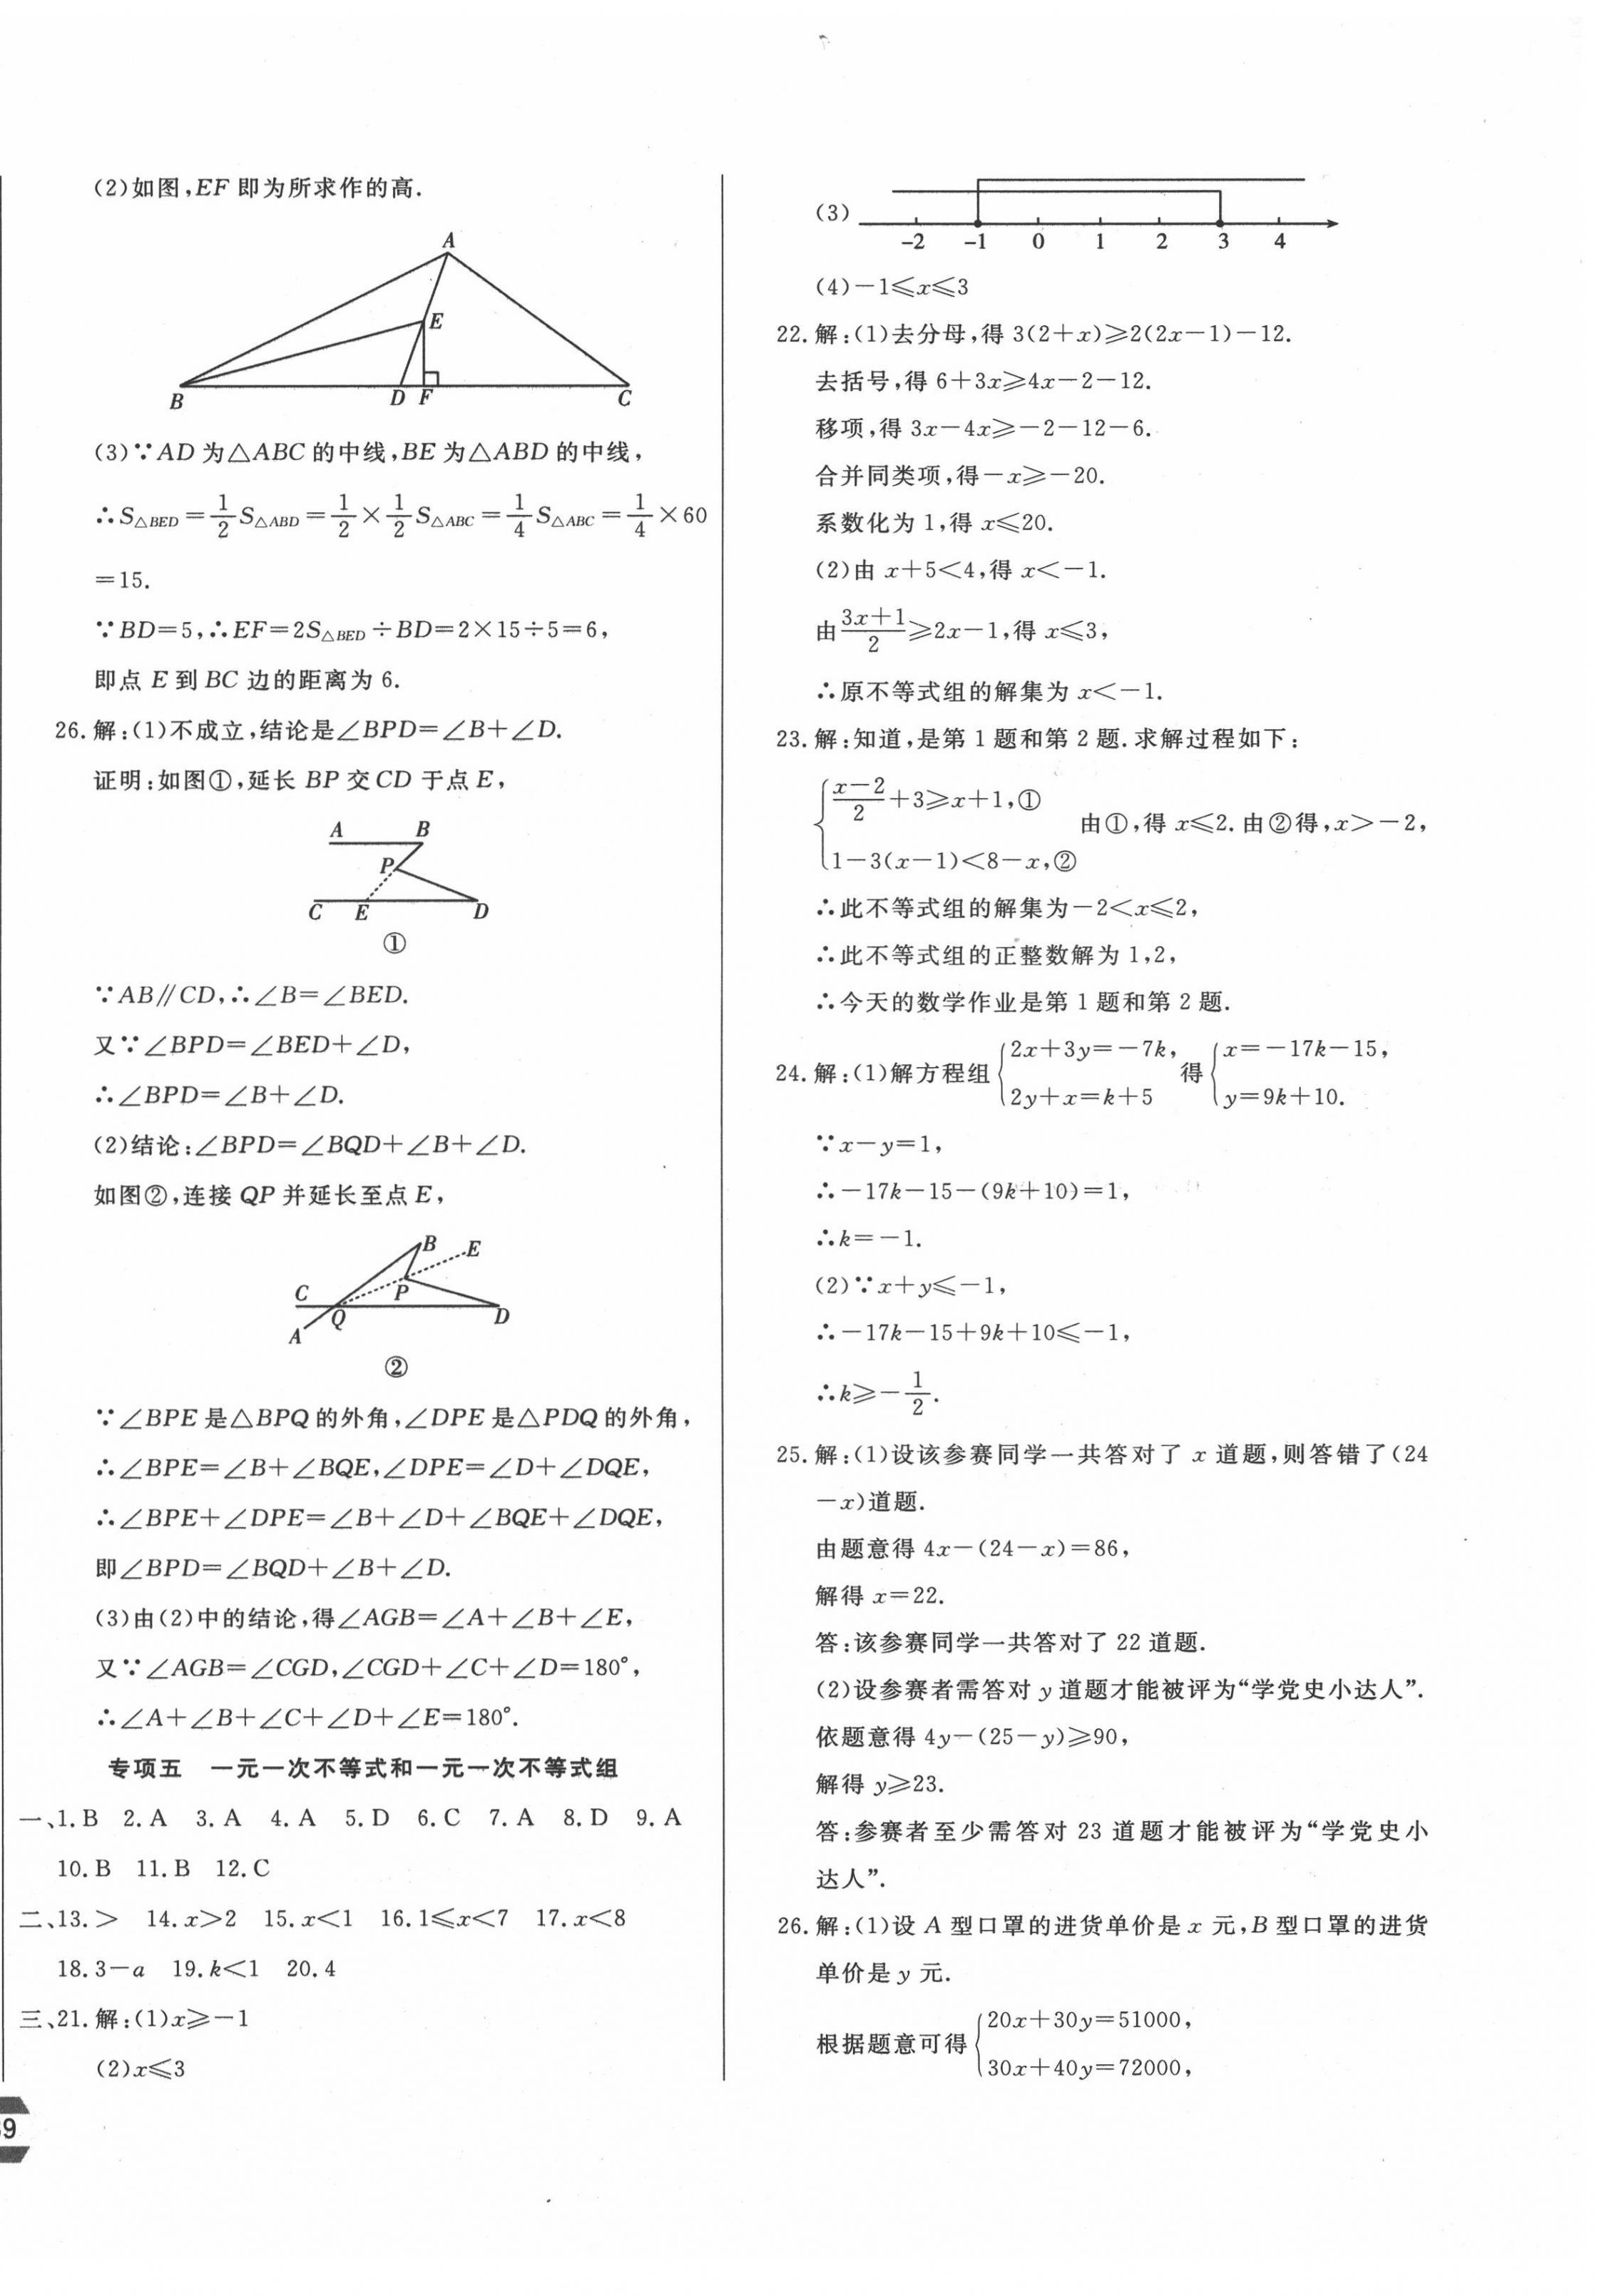 (2)如图,EF 即为所求作的高.
A
E
B
D
F
C
(3)∵AD 为△ABC 的中线,BE 为△ABD 的中线,
∴S△BED=1/2 S△ABD=1/2×1/2 S△ABC=1/4 S△ABC=1/4×60
=15.
∵BD=5,∴EF=2S△BED÷BD=2×15÷5=6,
即点 E 到 BC 边的距离为 6.
26.解:(1)不成立,结论是∠BPD=∠B+∠D.
证明:如图①,延长 BP 交 CD 于点 E,
A B
P
C E D
①
∵AB∥CD,∴∠B=∠BED.
又∵∠BPD=∠BED+∠D,
∴∠BPD=∠B+∠D.
(2)结论:∠BPD=∠BQD+∠B+∠D.
如图②,连接 QP 并延长至点 E,
B E
C P
A Q D
②
∵∠BPE 是△BPQ 的外角,∠DPE 是△PDQ 的外角,
∴∠BPE=∠B+∠BQE,∠DPE=∠D+∠DQE,
∴∠BPE+∠DPE=∠B+∠D+∠BQE+∠DQE,
即∠BPD=∠BQD+∠B+∠D.
(3)由(2)中的结论,得∠AGB=∠A+∠B+∠E,
又∵∠AGB=∠CGD,∠CGD+∠C+∠D=180°,
∴∠A+∠B+∠C+∠D+∠E=180°.
专项五 一元一次不等式和一元一次不等式组
一、1.B 2.A 3.A 4.A 5.D 6.C 7.A 8.D 9.A
10.B 11.B 12.C
二、13.> 14.x>2 15.x<1 16.1⩽x<7 17.x<8
18.3-a 19.k<1 20.4
三、21.解:(1)x⩾-1
(2)x⩽3
9
(3)
-2 -1 0 1 2 3 4
(4)-1⩽x⩽3
22.解:(1)去分母,得 3(2+x)⩾2(2x-1)-12.
去括号,得 6+3x⩾4x-2-12.
移项,得 3x-4x⩾-2-12-6.
合并同类项,得-x⩾-20.
系数化为 1,得 x⩽20.
(2)由 x+5<4,得 x<-1.
由(3x+1)/2⩾2x-1,得 x⩽3,
∴原不等式组的解集为 x<-1.
23.解:知道,是第 1 题和第 2 题.求解过程如下:
{(x-2)/2+3⩾x+1,①
1-3(x-1)<8-x,② 由①,得 x⩽2.由②得,x>-2,
∴此不等式组的解集为-2<x⩽2,
∴此不等式组的正整数解为 1,2,
∴今天的数学作业是第 1 题和第 2 题.
24.解:(1)解方程组{2x+3y=-7k, 得{x=-17k-15,
2y+x=k+5 y=9k+10.
∵x-y=1,
∴-17k-15-(9k+10)=1,
∴k=-1.
(2)∵x+y⩽-1,
∴-17k-15+9k+10⩽-1,
∴k⩾-1/2.
25.解:(1)设该参赛同学一共答对了 x 道题,则答错了(24
-x)道题.
由题意得 4x-(24-x)=86,
解得 x=22.
答:该参赛同学一共答对了 22 道题.
(2)设参赛者需答对 y 道题才能被评为“学党史小达人”.
依题意得 4y-(25-y)⩾90,
解得 y⩾23.
答:参赛者至少需答对 23 道题才能被评为“学党史小
达人”.
26.解:(1)设 A 型口罩的进货单价是 x 元,B 型口罩的进货
单价是 y 元.
根据题意可得{20x+30y=51000,
30x+40y=72000,